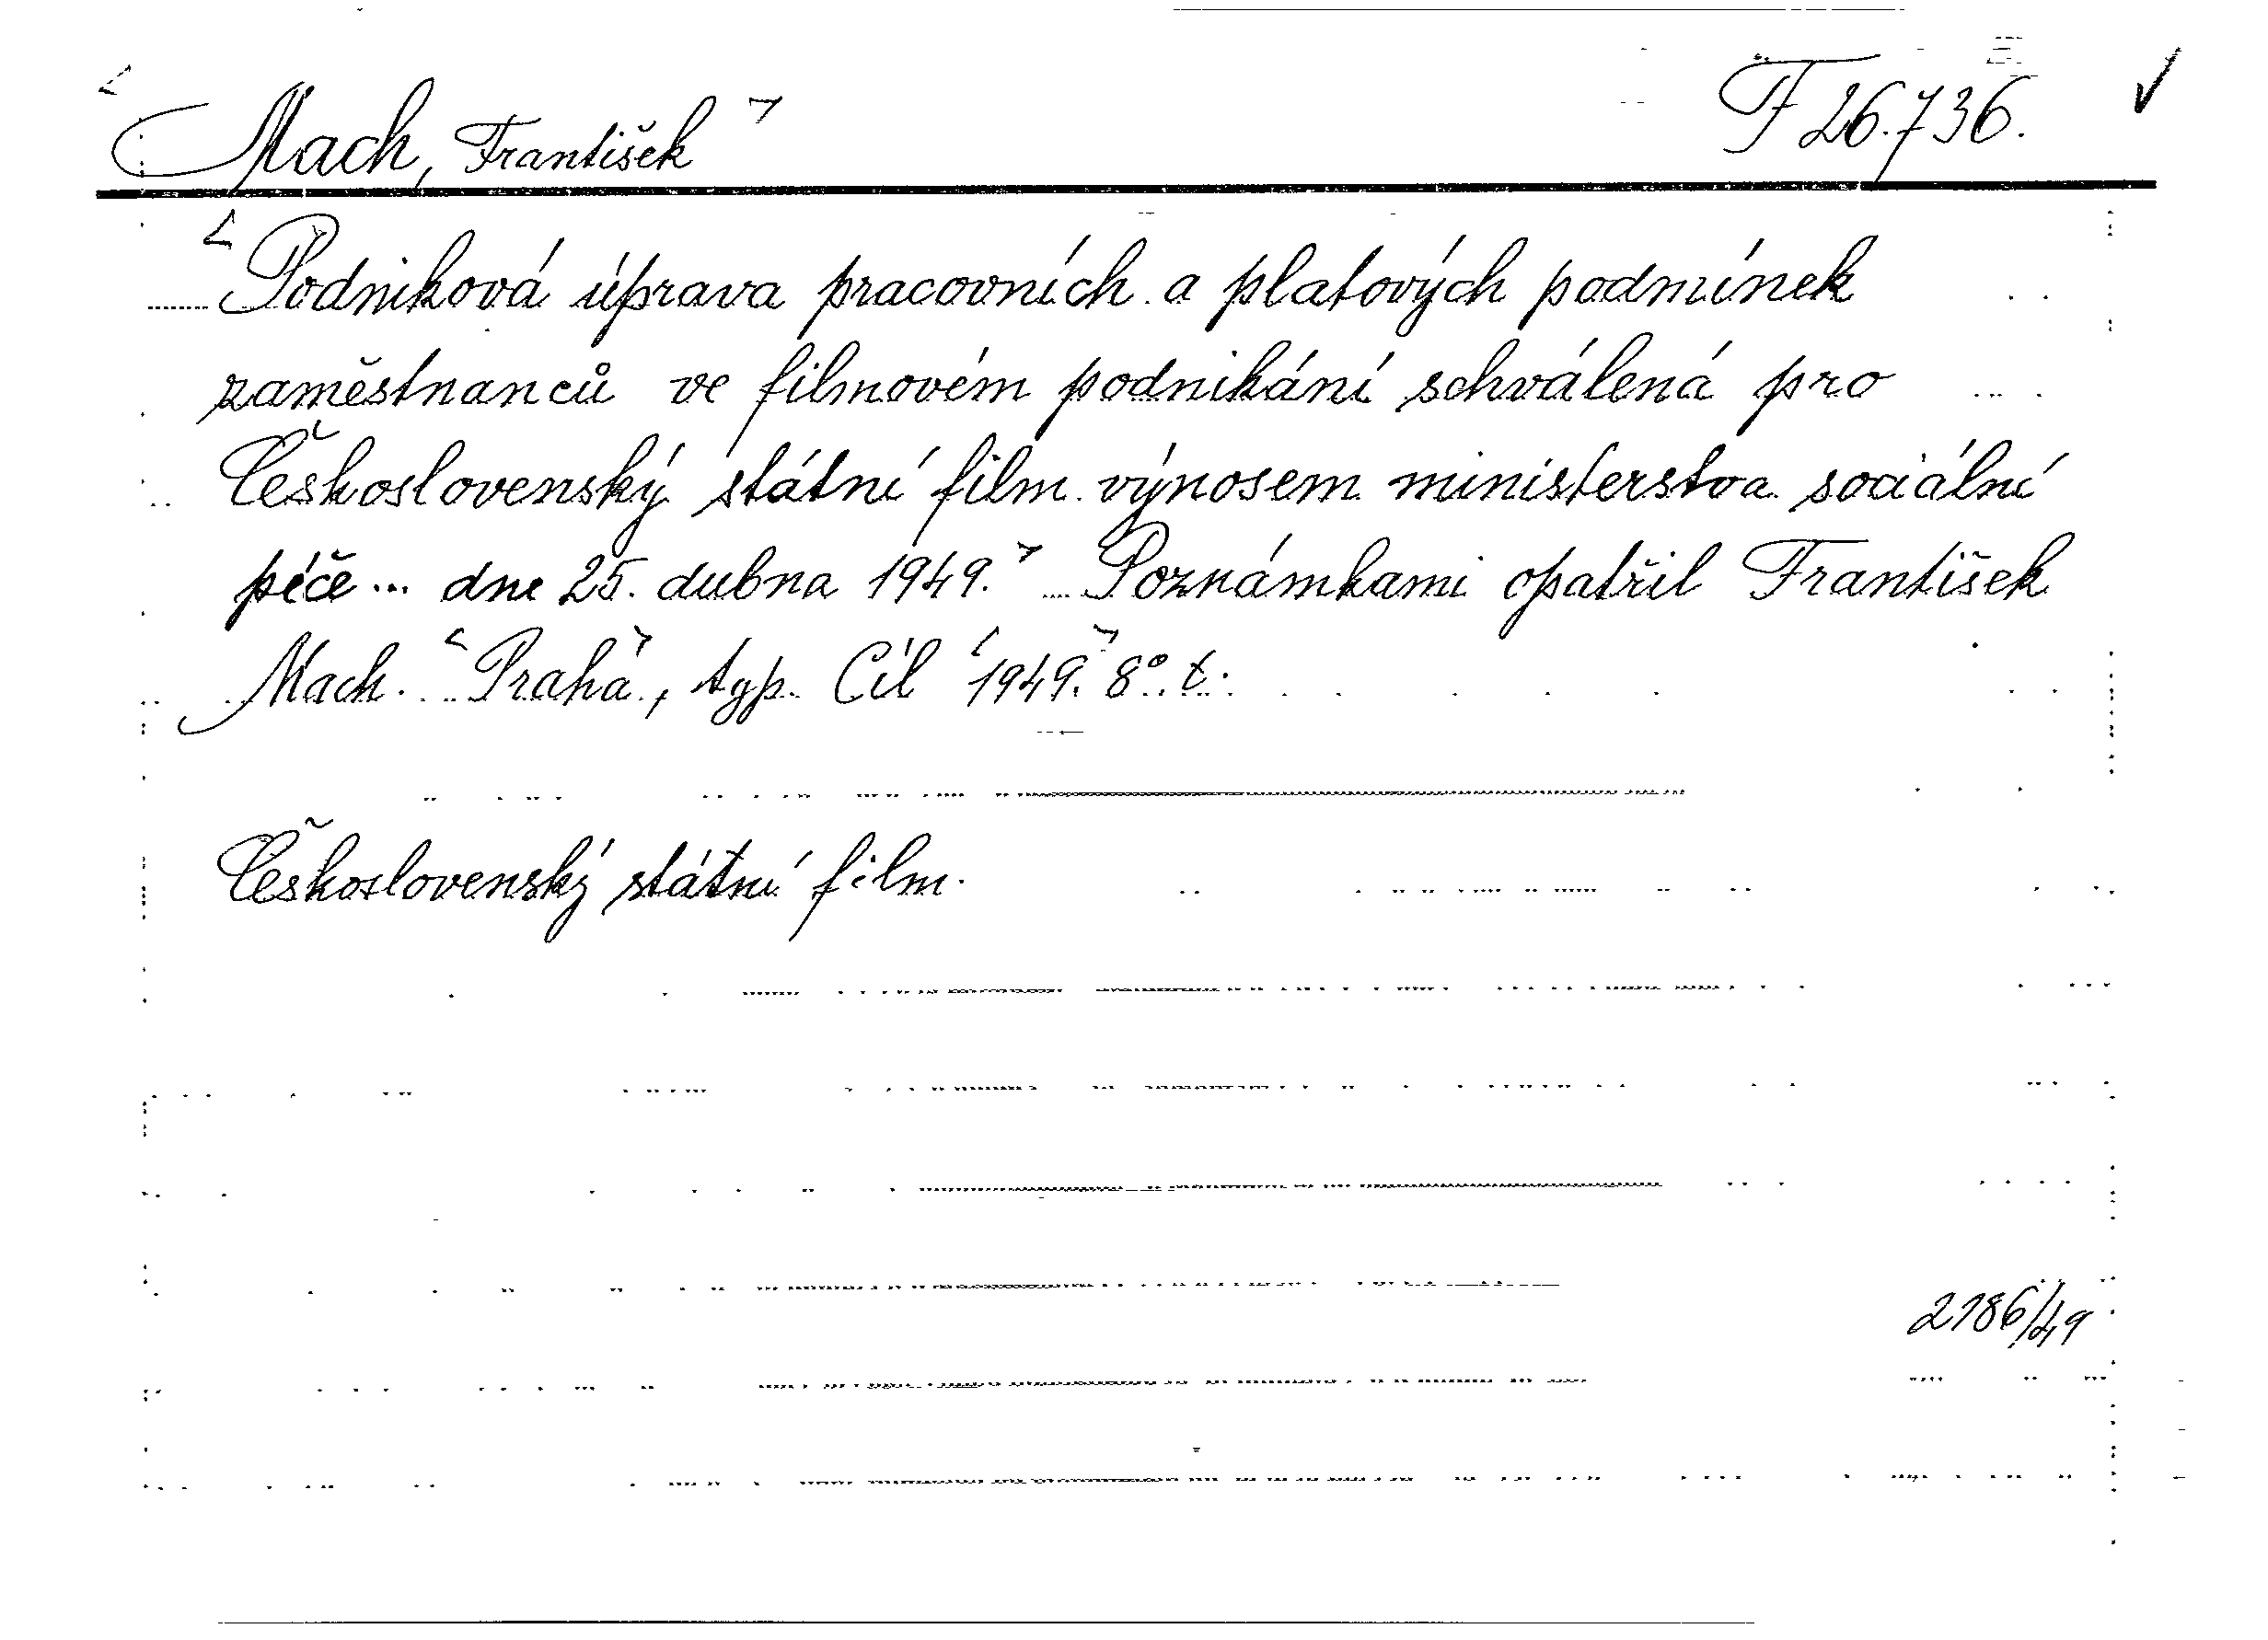 Mach, František F 26.736.
Podniková úprava pracovních a platových podmínek
zaměstnanců ve filmovém podnikání schválená pro
Československý státní film výnosem ministerstva sociální
péče... dne 25. dubna 1949. Poznámkami opatřil František
Mach. Praha, typ. Cíl 1949. 8° t.
Československý státní film.
2186/49